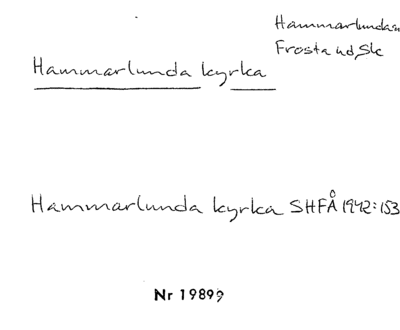 Hammarlunda sn
Frosta hd, Sk
Hammarlunda kyrka
Hammarlunda kyrka SHFÅ 1942:153
Nr 19899